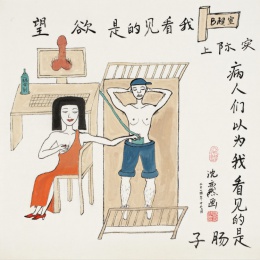 B超室
我看见的是欲望
实际上
病人们以为我看见的是
肠子